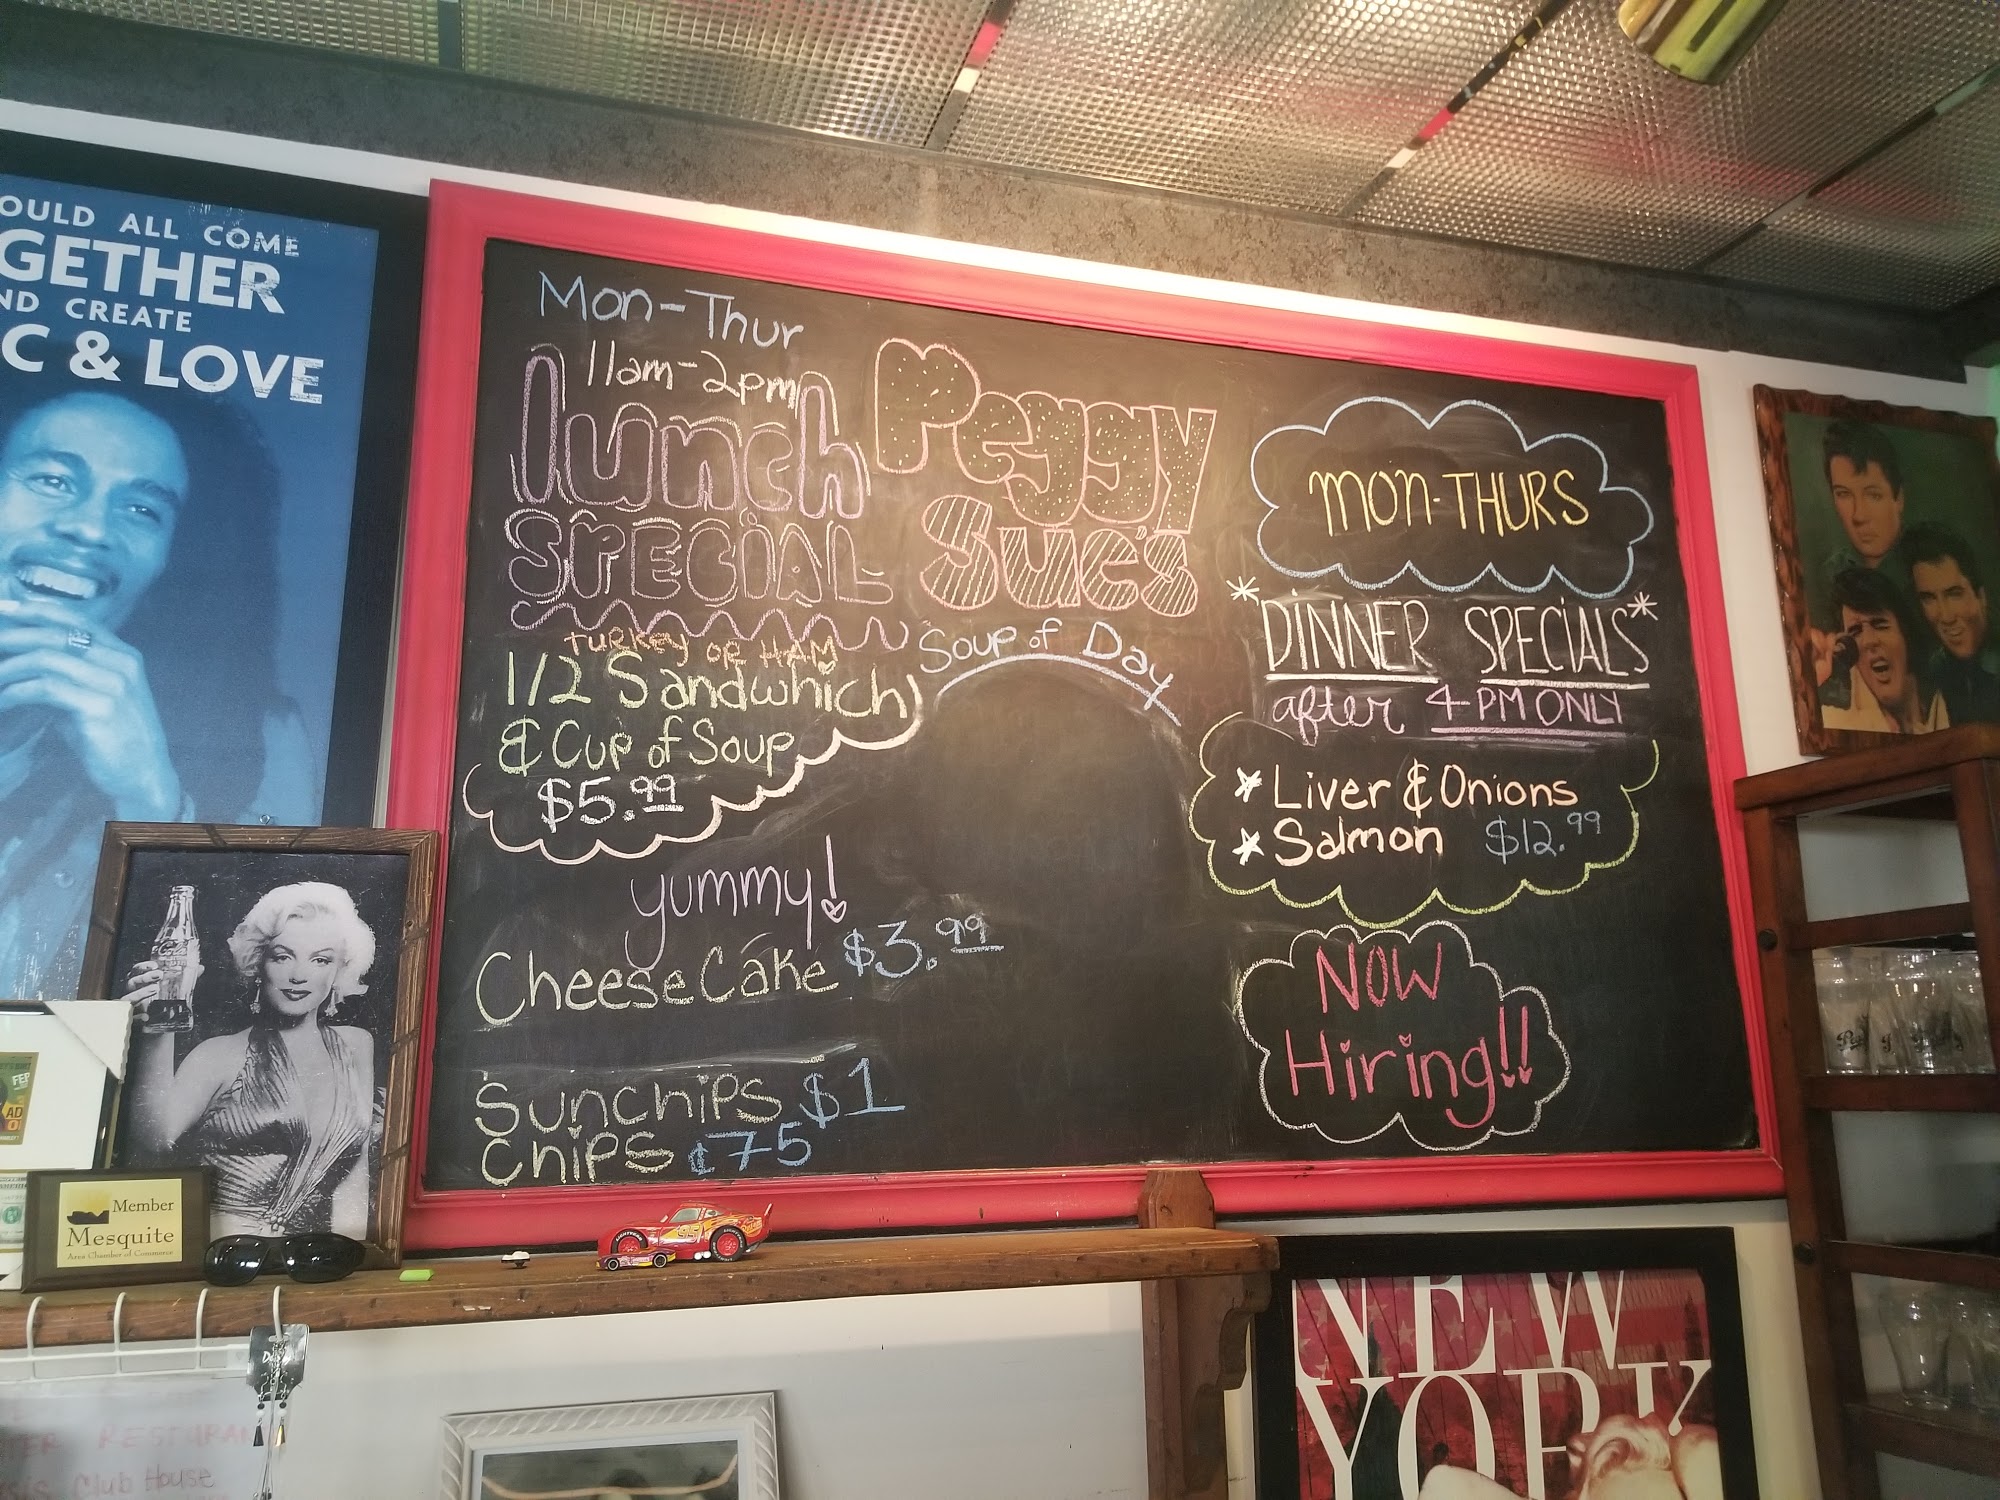 OULD ALL COME
GETHER
ND CREATE
C & LOVE
Mon-Thur
11am-2pm
lunch
SPECiAL
TURKEY or HAM
1/2 Sandwhich
& Cup of Soup
$5.99
yummy!
CheeseCake $3.99
Sunchips $1
Chips ¢75
Peggy
Sue's
Soup of Day
MON-THURS
*DiNNER SPECiALS*
after 4-PM ONLY
* Liver & Onions
* Salmon $12.99
NOW
Hiring!!
Member
Mesquite
Area Chamber of Commerce
95
NEW
YORK
Club House